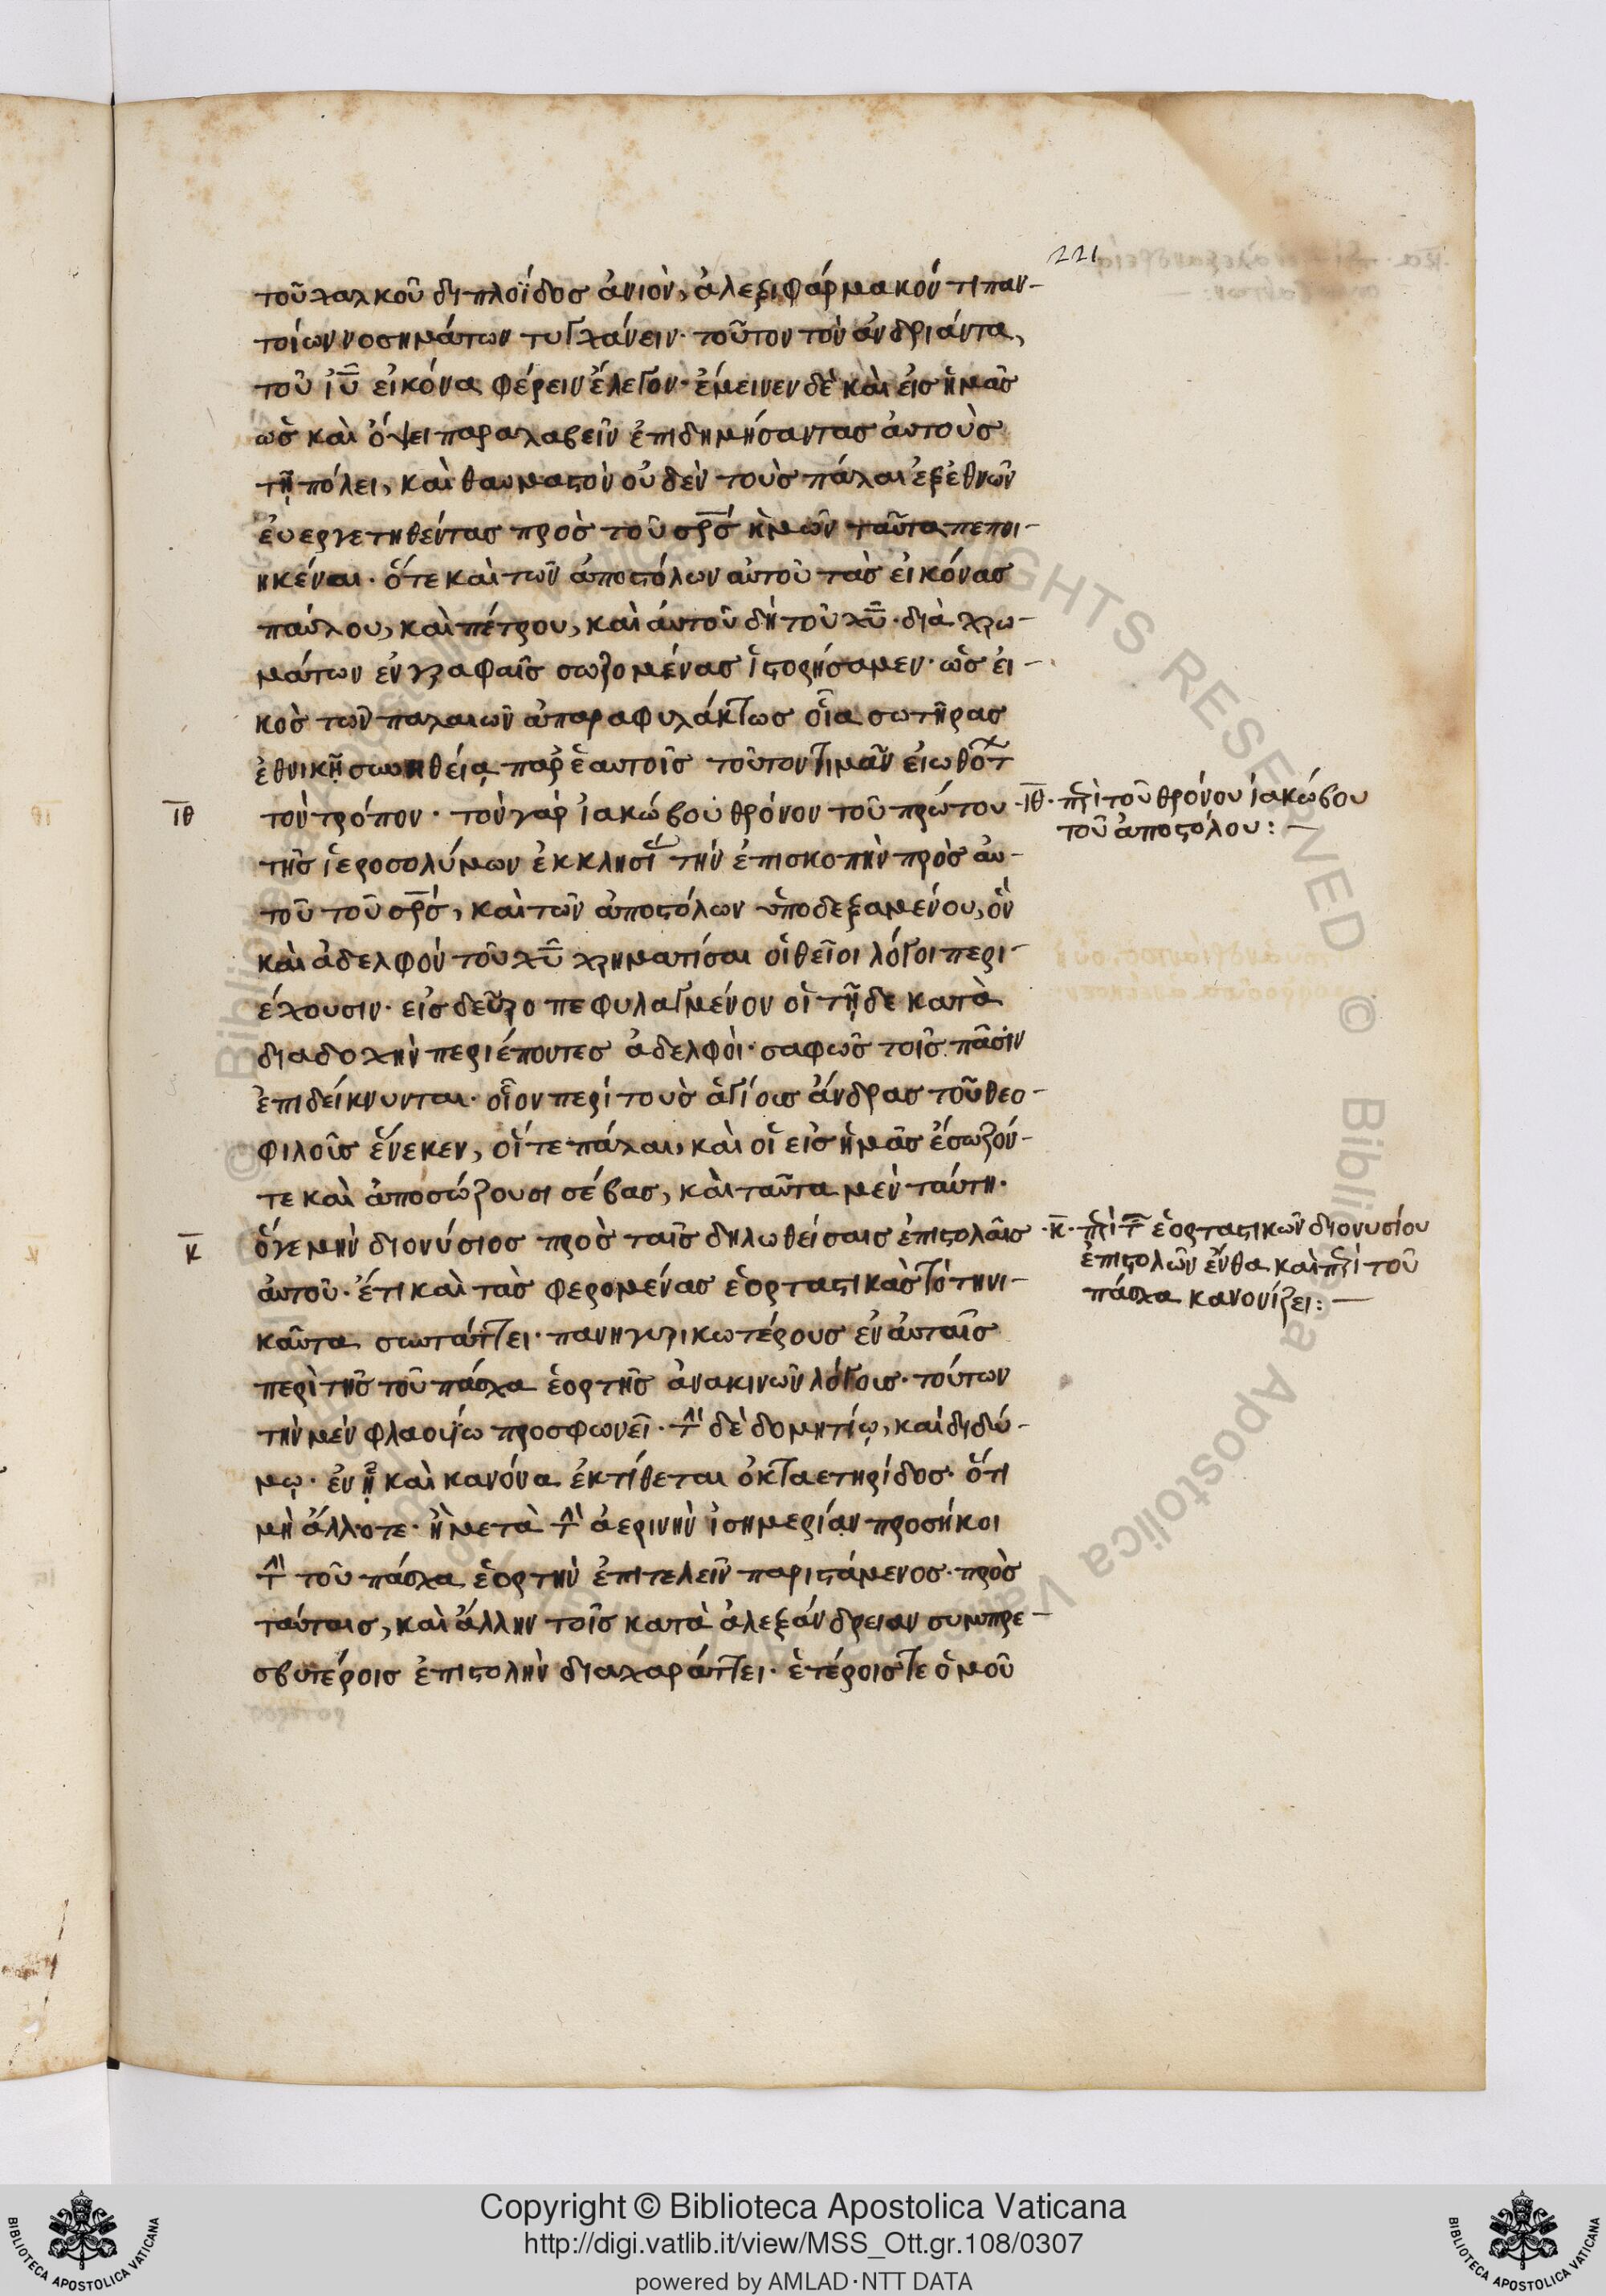 221
τοῦ χαλκοῦ διπλοΐδοσ ἀνιὸν, ἀλεξιφάρμακόν τι παν-
τοίων νοσημάτων τυγχάνειν· τοῦτον τὸν ἀνδριάντα,
τοῦ ἰῦ εἰκόνα φέρειν ἔλεγον· ἔμεινεν δὲ καὶ εἰσ ἡμᾶσ
ὡσ καὶ ὄψει παραλαβεῖν ἐπιδημήσαντασ αὐτοὺσ
τῇ πόλει, καὶ θαυμαστὸν οὐδὲν τοὺσ πάλαι ἐξ ἐθνῶν
εὐεργετηθέντασ πρὸσ τοῦ σρ̅σ ἡμῶν ταῦτα πεποι-
ηκέναι· ὅτε καὶ τῶν ἀποστόλων αὐτοῦ τὰσ εἰκόνασ
παύλου, καὶ πέτρου, καὶ αὐτοῦ δὴ τοῦ χῦ· διὰ χρω-
μάτων ἐν γραφαῖσ σωζομένασ ἱστορήσαμεν· ὡσ εἰ-
κὸσ τῶν παλαιῶν ἀπαραφυλάκτωσ οἷα σωτῆρασ
ἐθνικῇ συνηθείᾳ παρ' ἑαυτοῖσ τοῦτον τιμᾶν εἰωθότ
ΙΘ τὸν τρόπον· τὸν γὰρ ἰακώβου θρόνον τοῦ πρώτου
·ΙΘ· περὶ τοῦ θρόνου ἰακώβου
τοῦ ἀποστόλου: —
τῆσ ἱεροσολύμων ἐκκλησί τὴν ἐπισκοπὴν πρὸσ αὐ-
τοῦ τοῦ σρ̅σ, καὶ τῶν ἀποστόλων ὑποδεξαμένου, ὃν
καὶ ἀδελφὸν τοῦ χῦ χρηματίσαι οἱ θεῖοι λόγοι περι-
έχουσιν· εἰσ δεῦρο πεφυλαγμένον οἱ τῇδε κατὰ
διαδοχὴν περιέποντεσ ἀδελφοὶ· σαφῶσ τοῖσ πᾶσιν
ἐπιδείκνυνται· οἷον περὶ τοὺσ ἁγίουσ ἄνδρασ τοῦ θεο-
φιλοῦσ ἕνεκεν, οἵ τε πάλαι, καὶ οἱ εἰσ ἡμᾶσ ἔσωζόν-
τε καὶ ἀποσώζουσι σέβασ, καὶ ταῦτα μὲν ταύτη·
κ̅ ὅγε μὴν διονύσιοσ πρὸσ ταῖσ δηλωθείσαισ ἐπιστολαῖσ
·κ̅· περὶ τ ἑορταστικῶν διονυσίου
ἐπιστολῶν ἔνθα καὶ περὶ τοῦ
πάσχα κανονίζει: —
αὐτοῦ· ἔτι καὶ τὰσ φερομένασ ἑορταστικὰσ τὸ τηνι-
καῦτα συντάττει· πανηγυρικωτέρουσ ἐν αὐταῖσ
περὶ τῆσ τοῦ πάσχα ἑορτῆσ ἀνακινῶν λόγουσ· τούτων
τὴν μὲν φλαουΐω προσφωνεῖ· τὴν δὲ δομητίῳ, καὶ διδύ-
μῳ· ἐν ᾗ καὶ κανόνα ἐκτίθεται ὀκταετηρίδοσ· ὅτι
μὴ ἄλλοτε· ἢ μετὰ τὴν ἀερινὴν ἰσημερίαν προσήκοι
τὴν τοῦ πάσχα ἑορτὴν ἐπιτελεῖν παριστάμενοσ· πρὸσ
ταύταισ, καὶ ἄλλην τοῖσ κατὰ ἀλεξάνδρειαν συμπρε-
σβυτέροισ ἐπιστολὴν διαχαράττει· ἑτέροισ τε ὁμοῦ
© Biblioteca Apostolica Vaticana
Copyright © Biblioteca Apostolica Vaticana
http://digi.vatlib.it/view/MSS_Ott.gr.108/0307
powered by AMLAD·NTT DATA
BIBLIOTECA APOSTOLICA VATICANA
BIBLIOTECA APOSTOLICA VATICANA